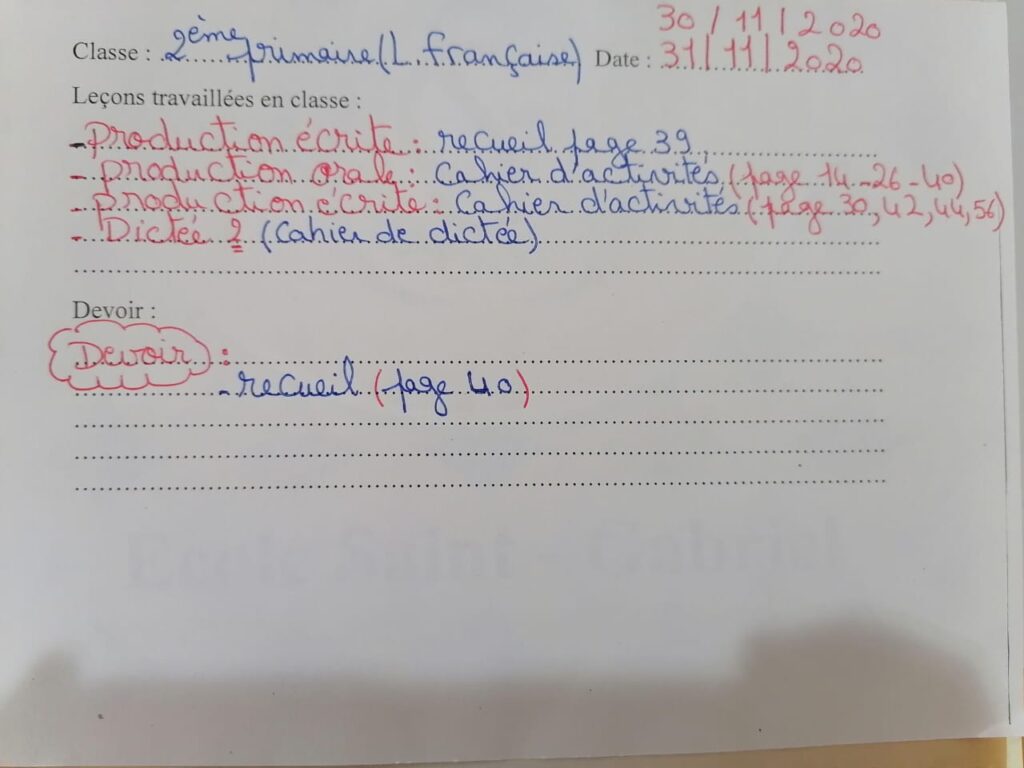 30/11/2020
Classe : 2ème primaire (L. française) Date : 31/11/2020
Leçons travaillées en classe :
- Production écrite : recueil page 39.
- production orale : Cahier d'activités (page 14-26-40)
- production écrite : Cahier d'activités (page 30, 42, 44, 56)
- Dictée 2 (Cahier de dictée)
Devoir :
Devoir :
- recueil (page 40)
Ecole Saint - Gabriel